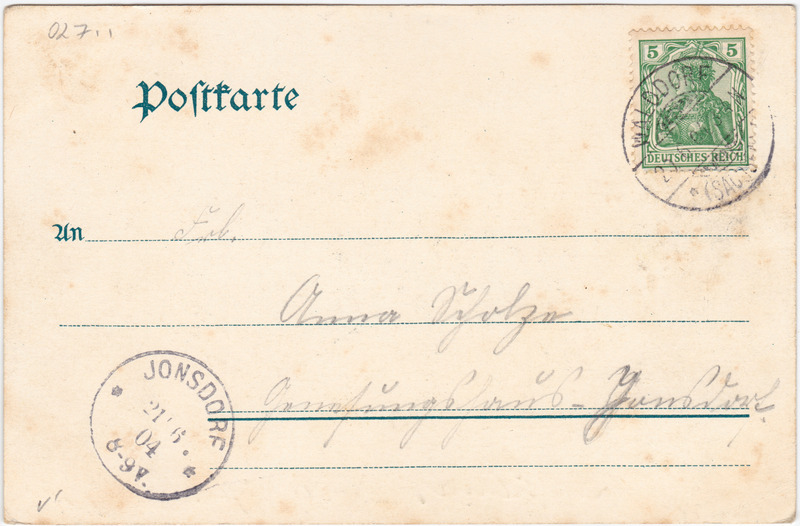 02711
Postkarte
5 5
DEUTSCHES REICH
WALDDORF
(SACHSEN)
An Frl.
Anna Scholze
Genesungshaus-Jonsdorf.
JONSDORF
21 6.
04
8-9V.